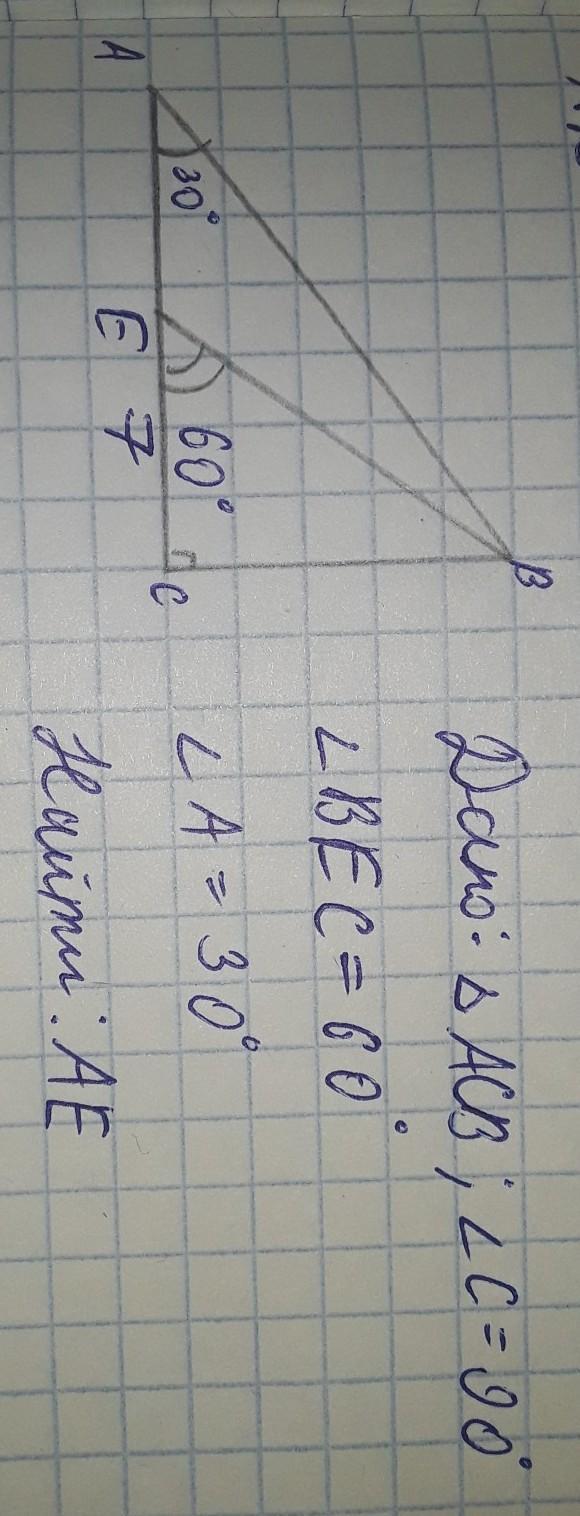 A
30°
E
7
60°
C
B
Дано: △ ACB; ∠C=90°
∠BEC=60°
∠A=30°
Найти: AE